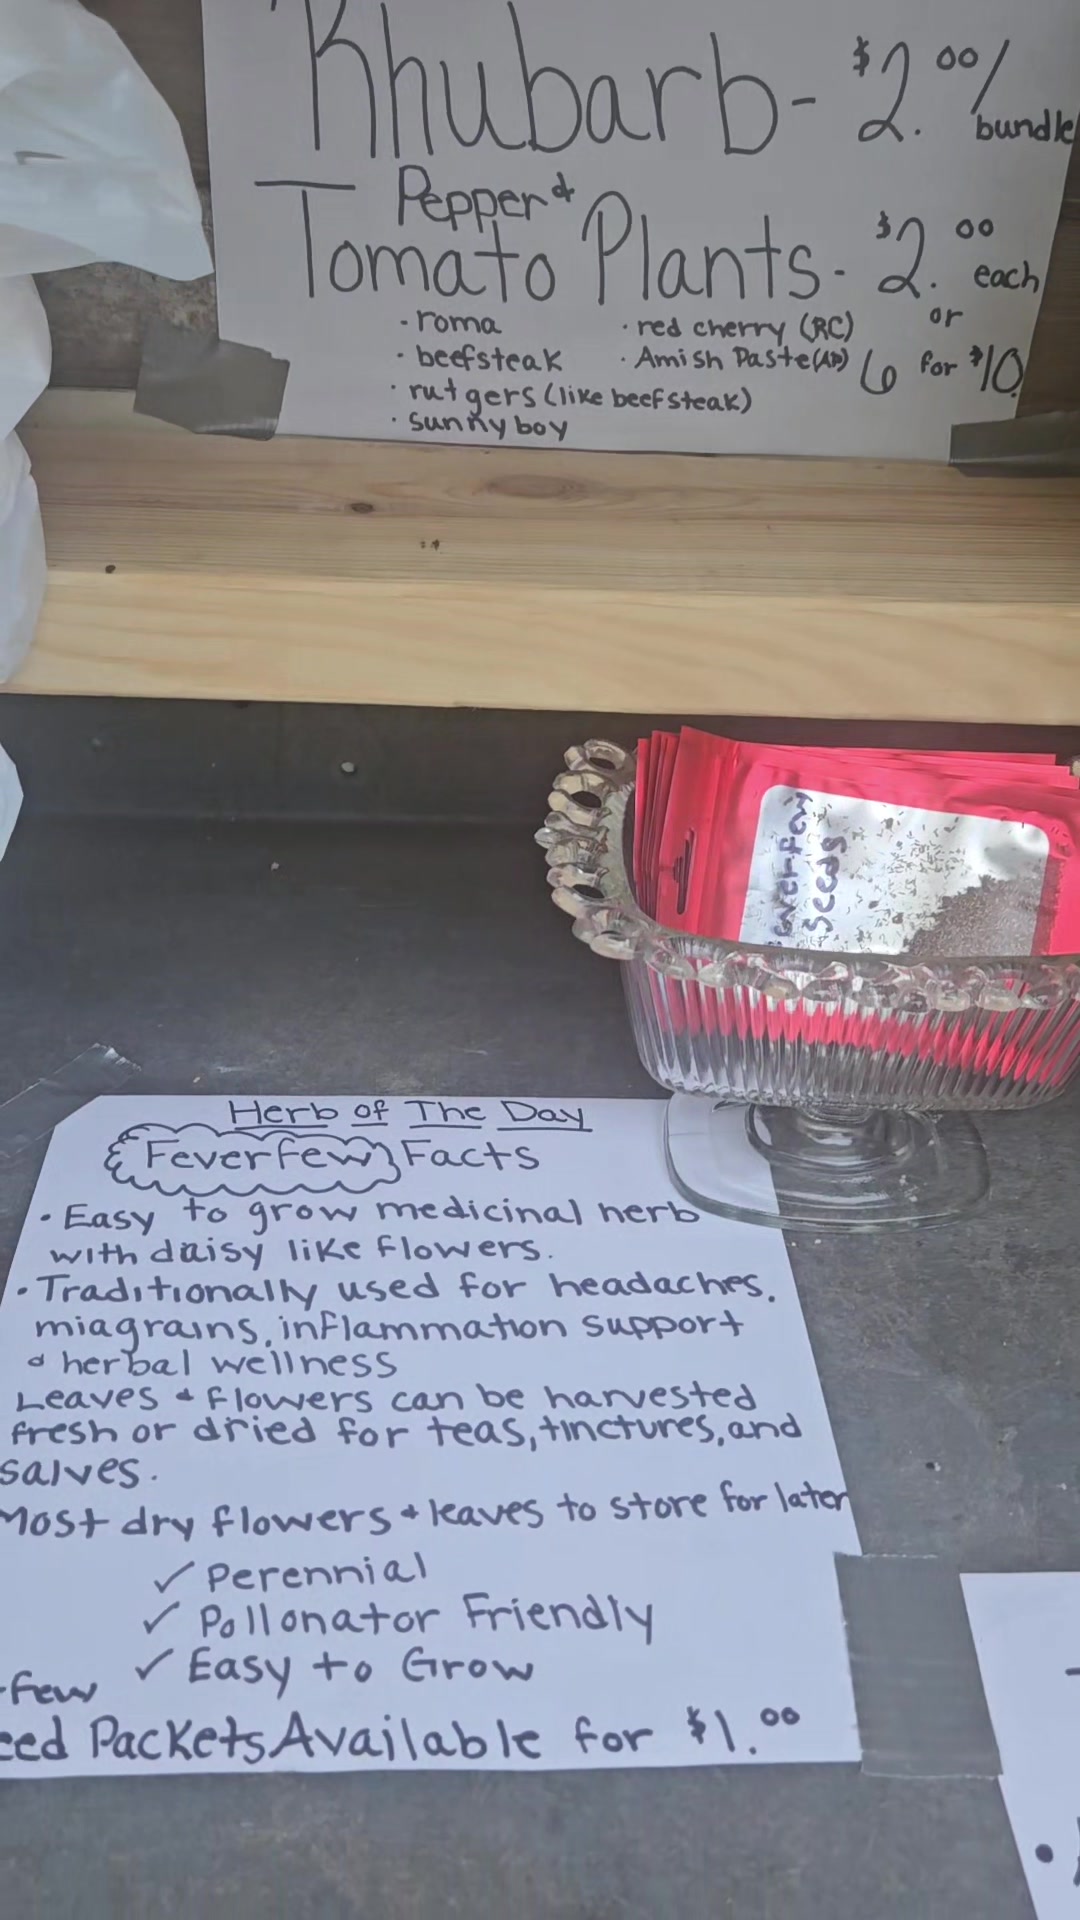 Rhubarb - $2.00/
bundle
Pepper &
Tomato Plants - $2.00
each
· roma
· beefsteak
· rutgers (like beefsteak)
· sunny boy
· red cherry (RC)
· Amish Paste (AP)
or
6 for $10
Seeds
Herb of The Day
Feverfew Facts
· Easy to grow medicinal herb
with daisy like flowers.
· Traditionally used for headaches,
miagrains, inflammation support
& herbal wellness
Leaves & flowers can be harvested
fresh or dried for teas, tinctures, and
salves.
Most dry flowers & leaves to store for later
✓ Perennial
✓ Pollonator Friendly
✓ Easy to Grow
few
eed Packets Available for $1.00